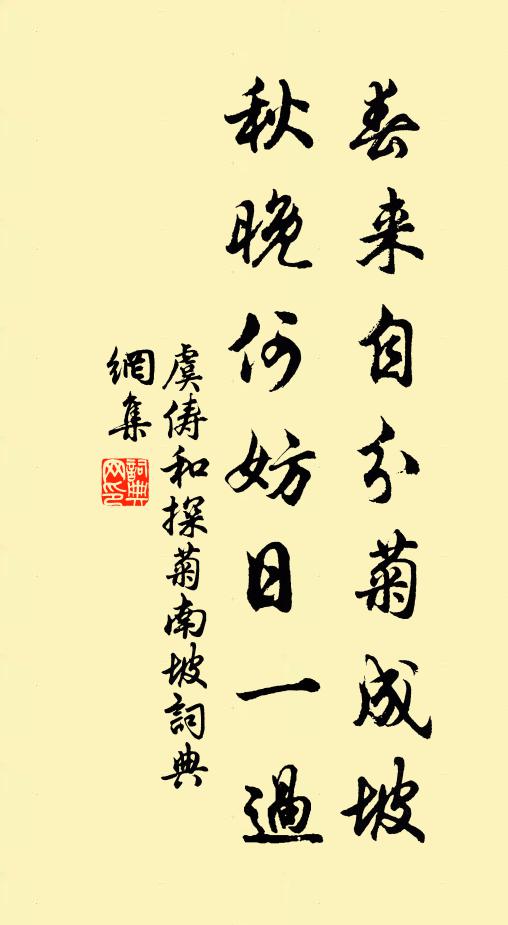 春来自分菊成坡
秋晚何妨日一過
虞俦和探菊南坡詞典
網集
詞典網印